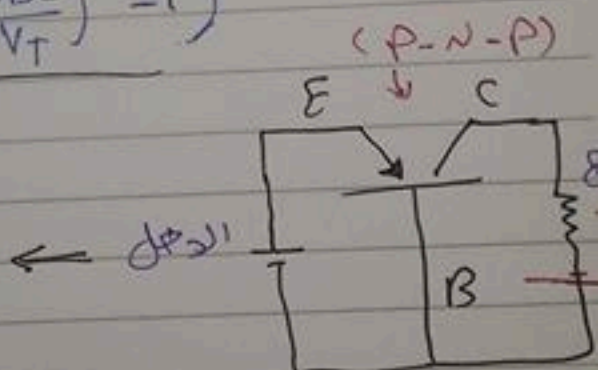 V_T ) - 1 )
(P-N-P)
E C
8
الدخل
B